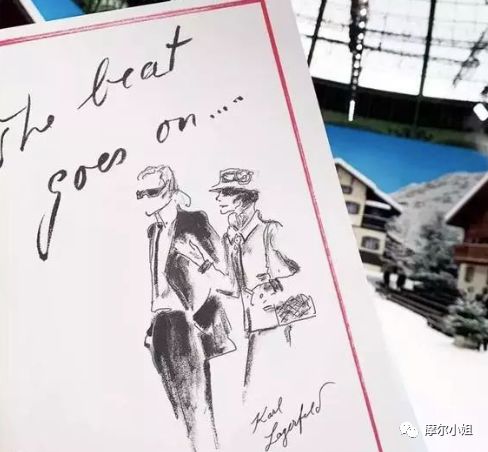 The beat
goes on....
Karl
Lagerfeld
摩尔小姐